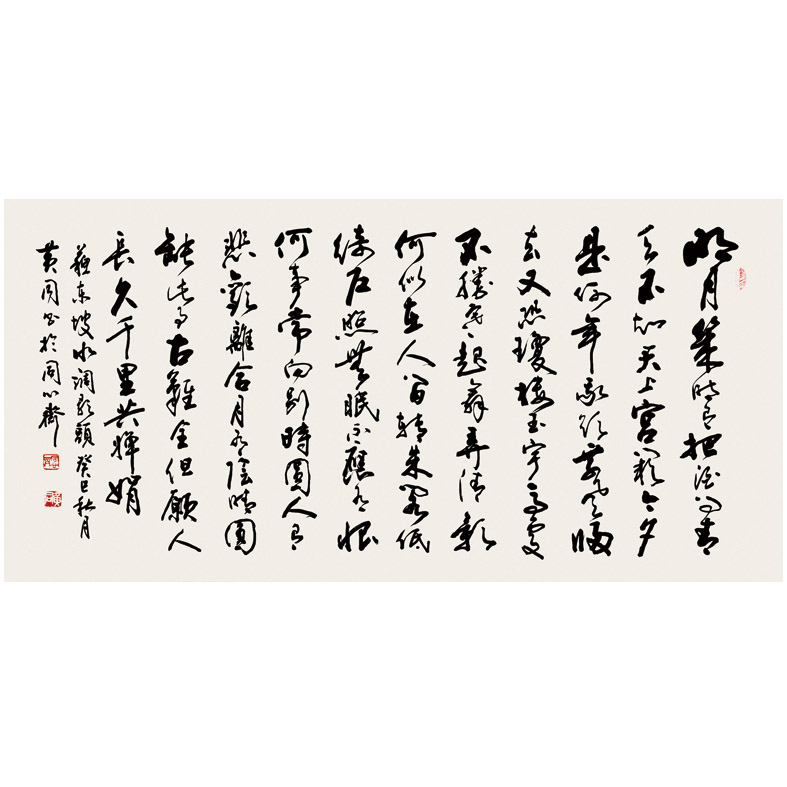 明月幾時有把酒問青
天不知天上宮闕今夕
是何年我欲乘風歸
去又恐瓊樓玉宇高處
不勝寒起舞弄清影
何似在人間轉朱閣低
綺戶照無眠不應有恨
何事常向別時圓人有
悲歡離合月有陰晴圓
缺此事古難全但願人
長久千里共嬋娟
蘇東坡水調歌頭 癸巳秋月
黃同書於同心齋